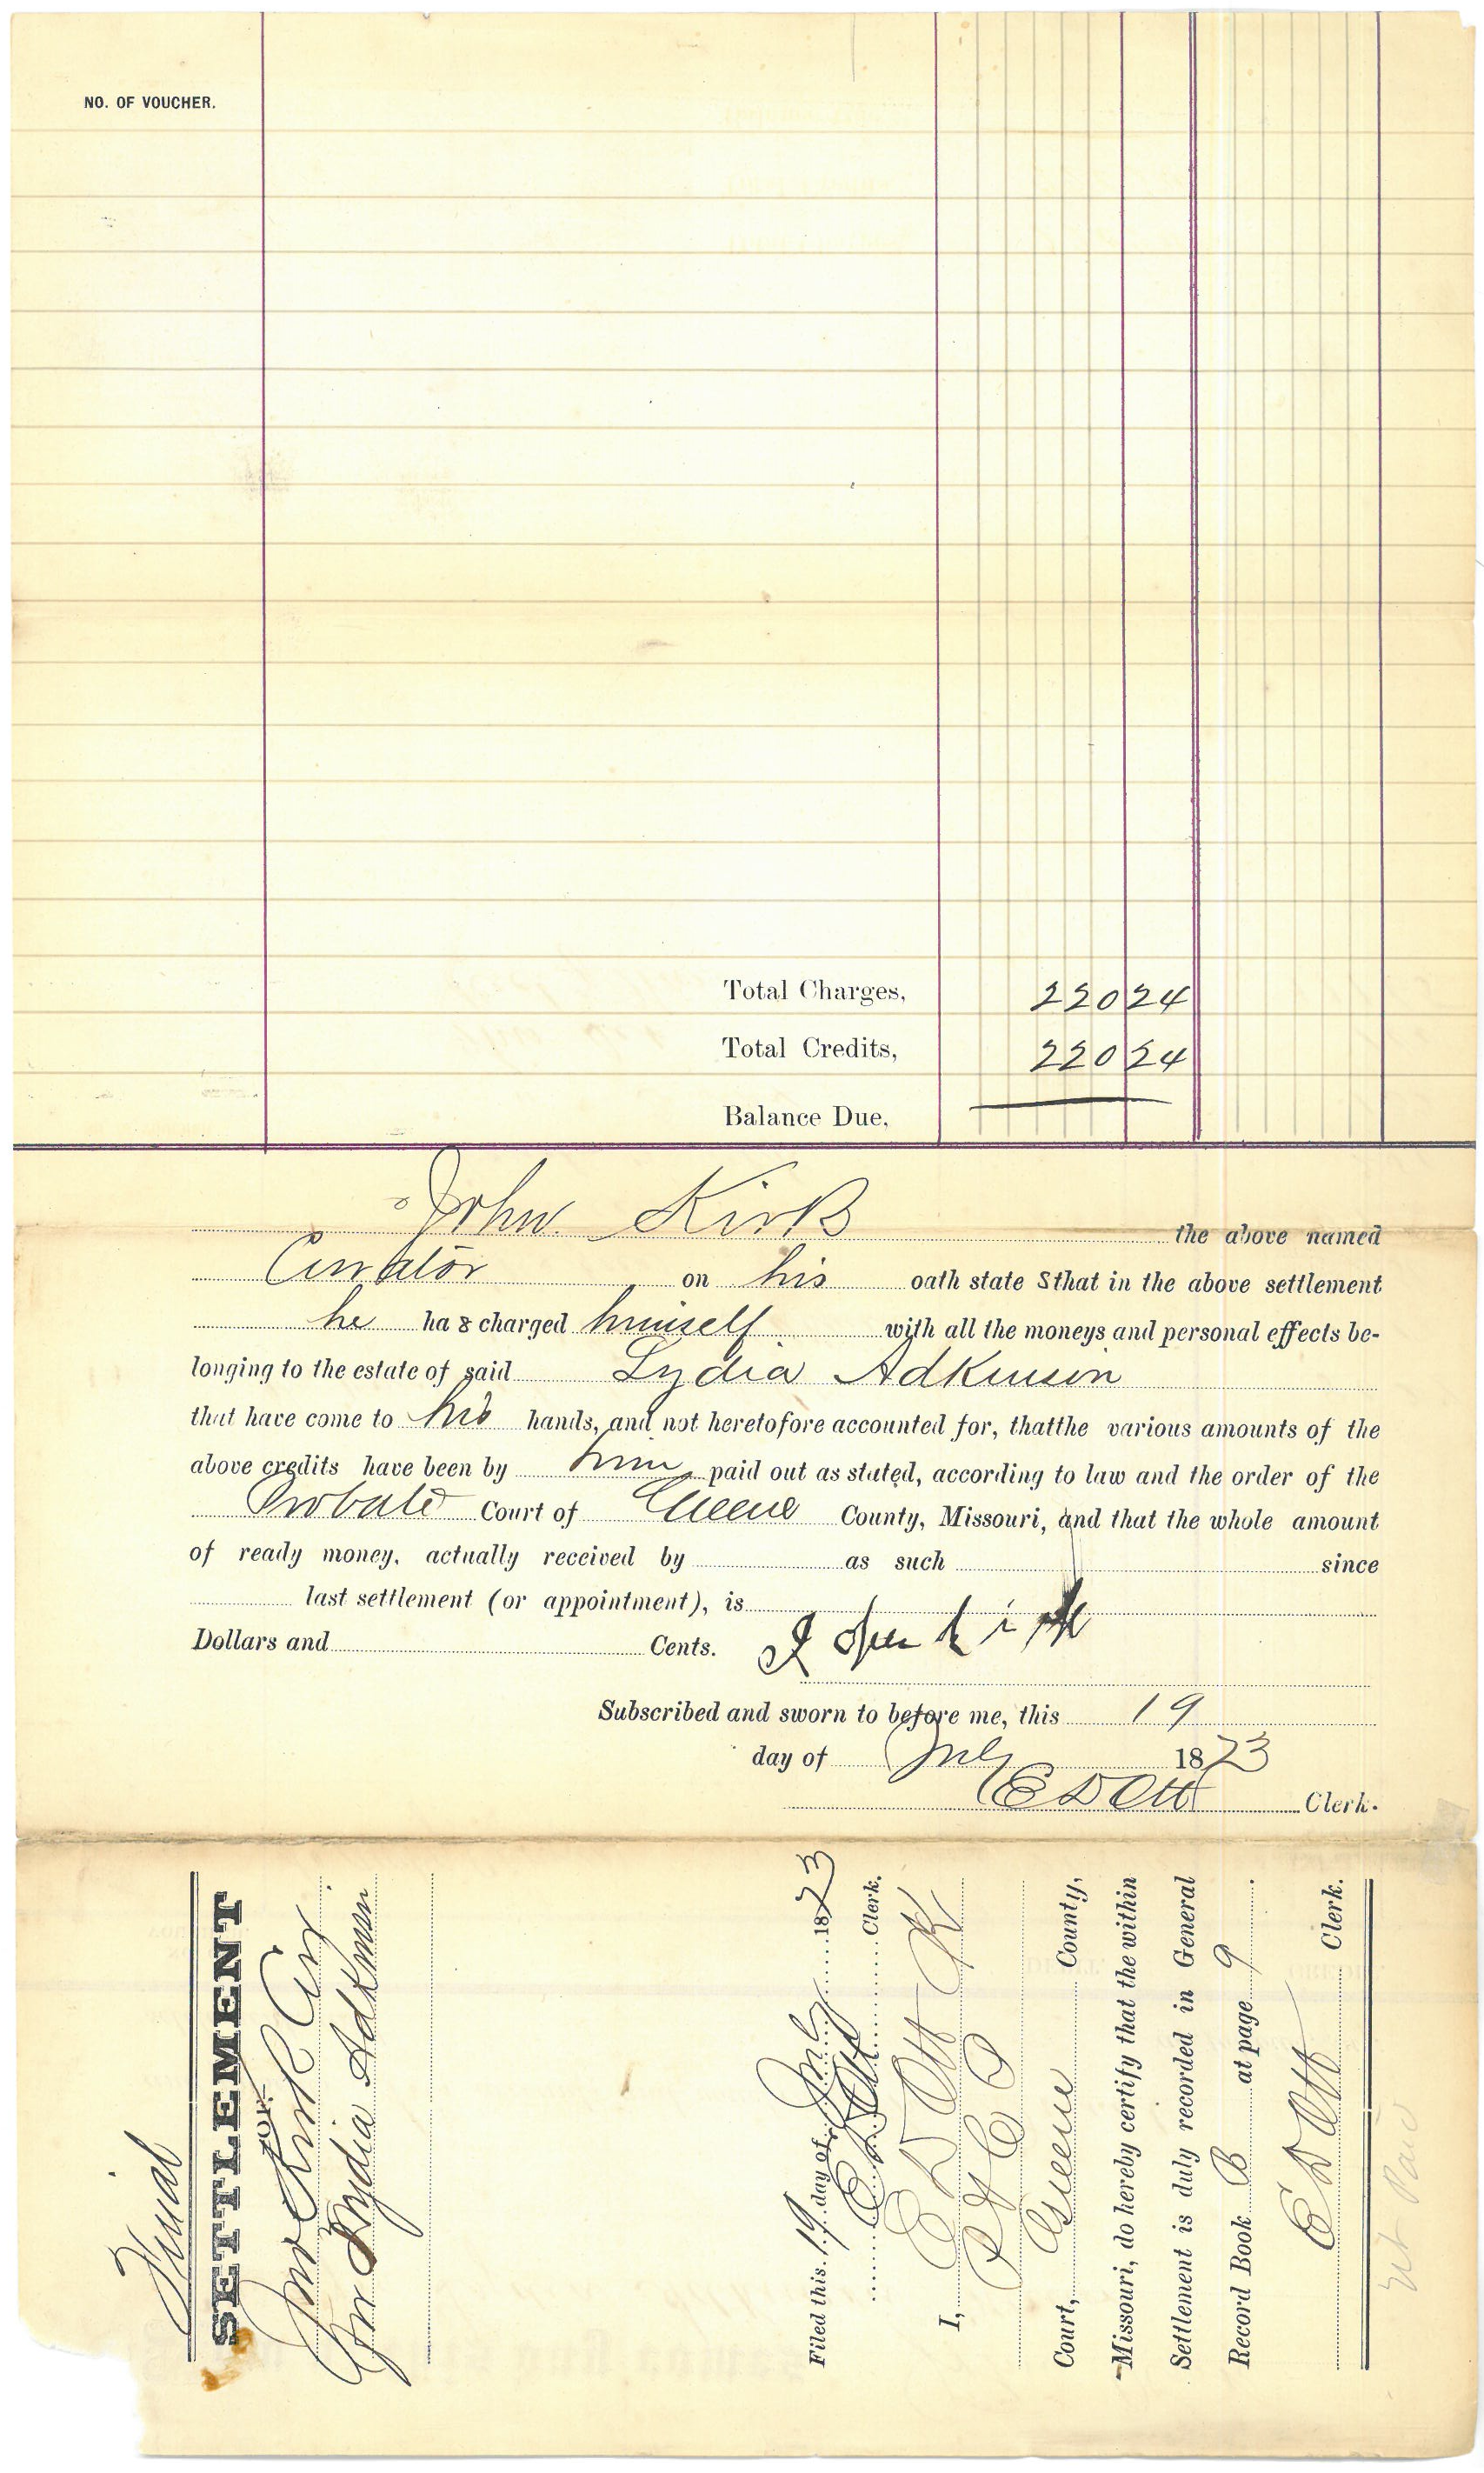 NO. OF VOUCHER.
Total Charges, 220 24
Total Credits, 220 24
Balance Due,
John Kirk the above named
Curator on his oath state s that in the above settlement
he has charged himself with all the moneys and personal effects be-
longing to the estate of said Lydia Adkinson
that have come to his hands, and not heretofore accounted for, thatthe various amounts of the
above credits have been by him paid out as stated, according to law and the order of the
Probate Court of Greene County, Missouri, and that the whole amount
of ready money, actually received by as such since
last settlement (or appointment), is
Dollars and Cents.
Subscribed and sworn to before me, this 19
day of July 1873
E D Ott Clerk.
Final
SETTLEMENT
OF
Jno Kirk Cur
for Lydia Adkinson
Filed this 19 day of July 1873
E D Ott Clerk.
I, E D Ott
Court, Greene County,
Missouri, do hereby certify that the within
Settlement is duly recorded in General
Record Book B at page 9.
E D Ott Clerk.